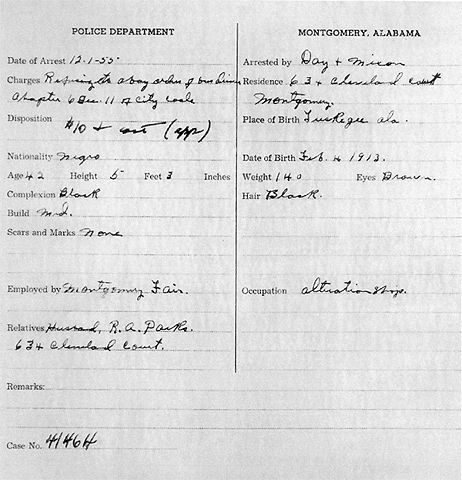 POLICE DEPARTMENT
Date of Arrest 12-1-55
Charges Refusing to obay orders of bus driver
Chapter 6 Sec. 11 of City Code
Disposition $10 + cost (app)
Nationality Negro
Age 42 Height 5 Feet 3 Inches
Complexion Black
Build Med.
Scars and Marks None
Employed by Montgomery Fair.
Relatives Husband, R.A. Parks.
634 Cleveland Court.
Remarks:
Case No. 41464
MONTGOMERY, ALABAMA
Arrested by Day + Mixon
Residence 634 Cleveland Court
Montgomery.
Place of Birth Tuskegee ala.
Date of Birth Feb. 4 1913.
Weight 140 Eyes Brown.
Hair Black.
Occupation altration shop.